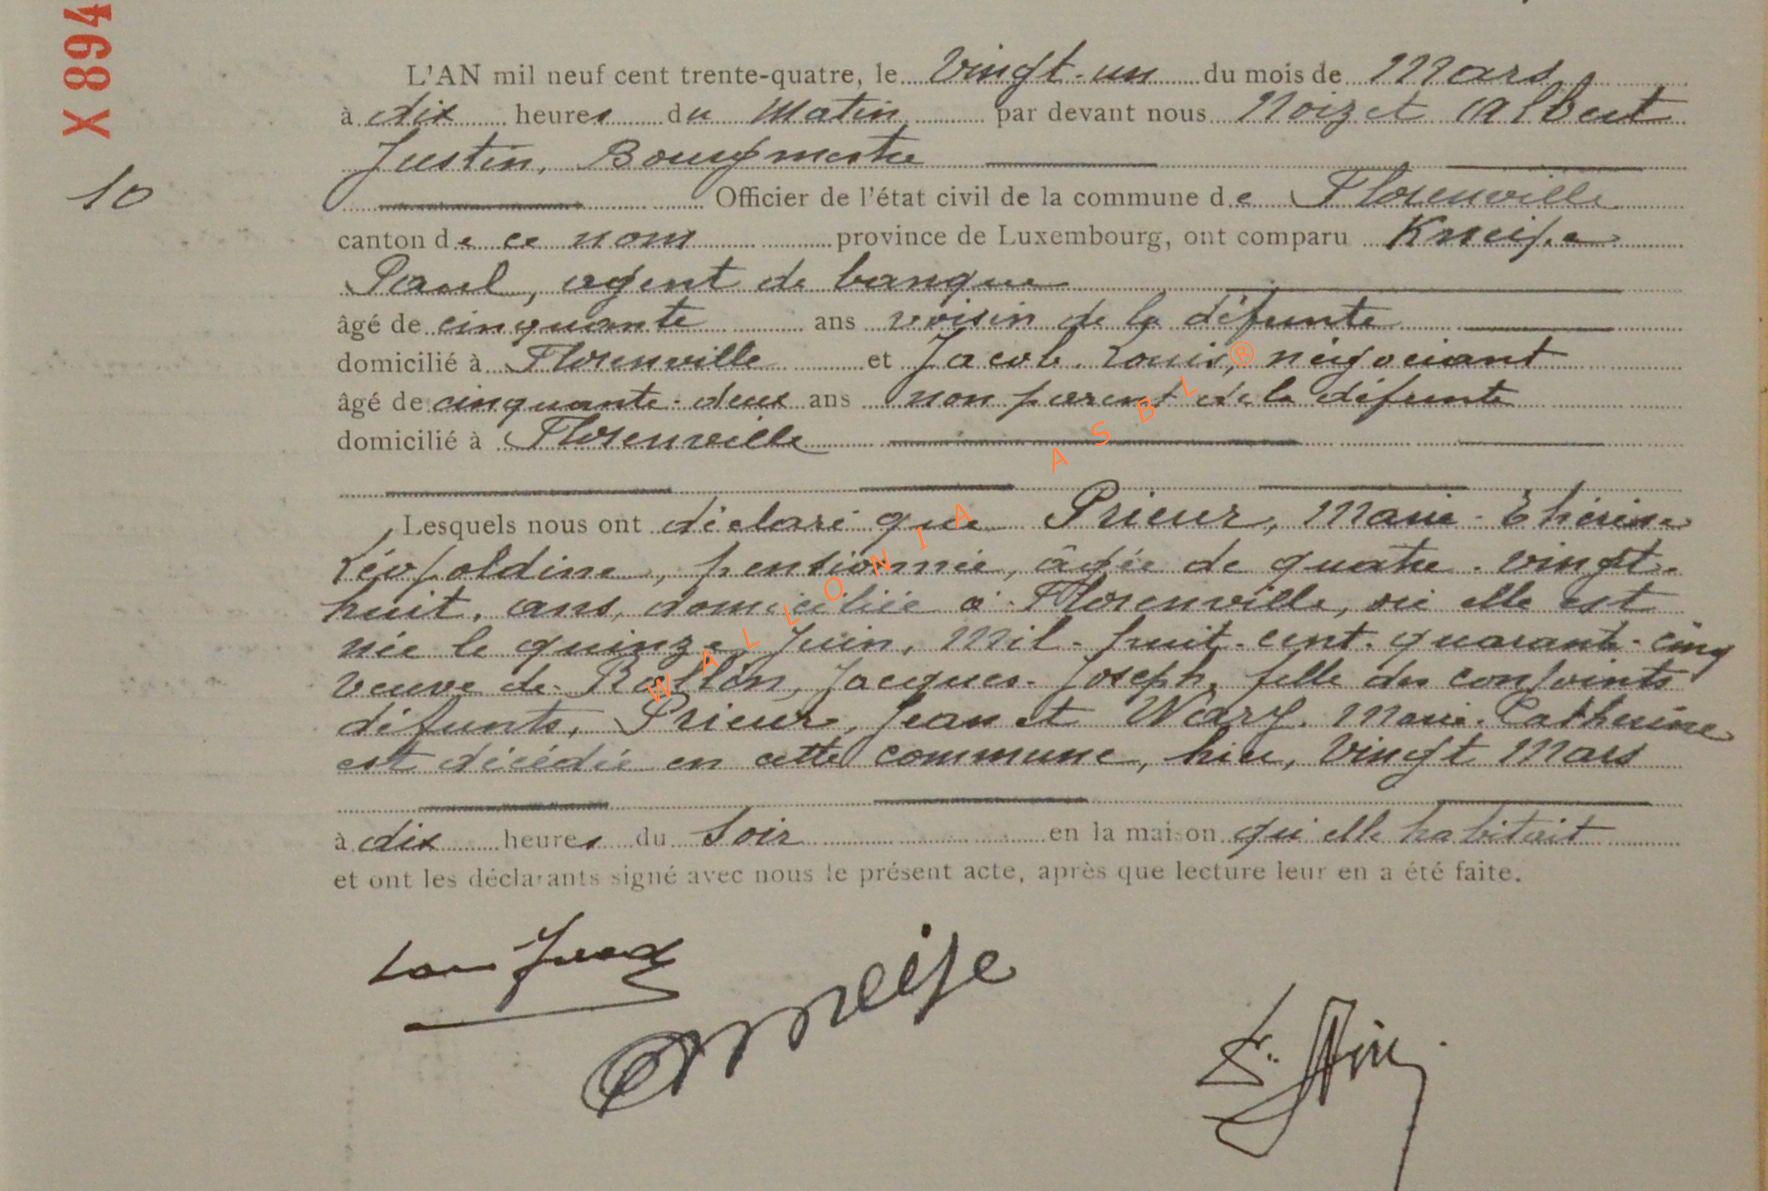 X 894
L'AN mil neuf cent trente-quatre, le vingt-un du mois de Mars
à dix heures du Matin par devant nous Noizet Albert
Justin, Bourgmestre
10
Officier de l'état civil de la commune de Florenville
canton de ce nom province de Luxembourg, ont comparu Kneipe
Paul, agent de banque
âgé de cinquante ans voisin de la défunte
domicilié à Florenville et Jacob, Louis, négociant
âgé de cinquante-deux ans non parent de la défunte
domicilié à Florenville
Lesquels nous ont déclaré que Prieur, Marie-Thérèse
Léopoldine, pensionnée, âgée de quatre-vingt-
huit, ans, domiciliée à Florenville, où elle est
née le quinze Juin, Mil-huit-cent-quarante-cinq
veuve de Jacques-Joseph, fille des conjoints
défunts, Prieur, Jean et Wary, Marie-Catherine
est décédée en cette commune, hier, vingt Mars
à dix heures du Soir en la maison qu'elle habitait
et ont les déclarants signé avec nous le présent acte, après que lecture leur en a été faite.
WALLONIA ASBL®
Kneipe